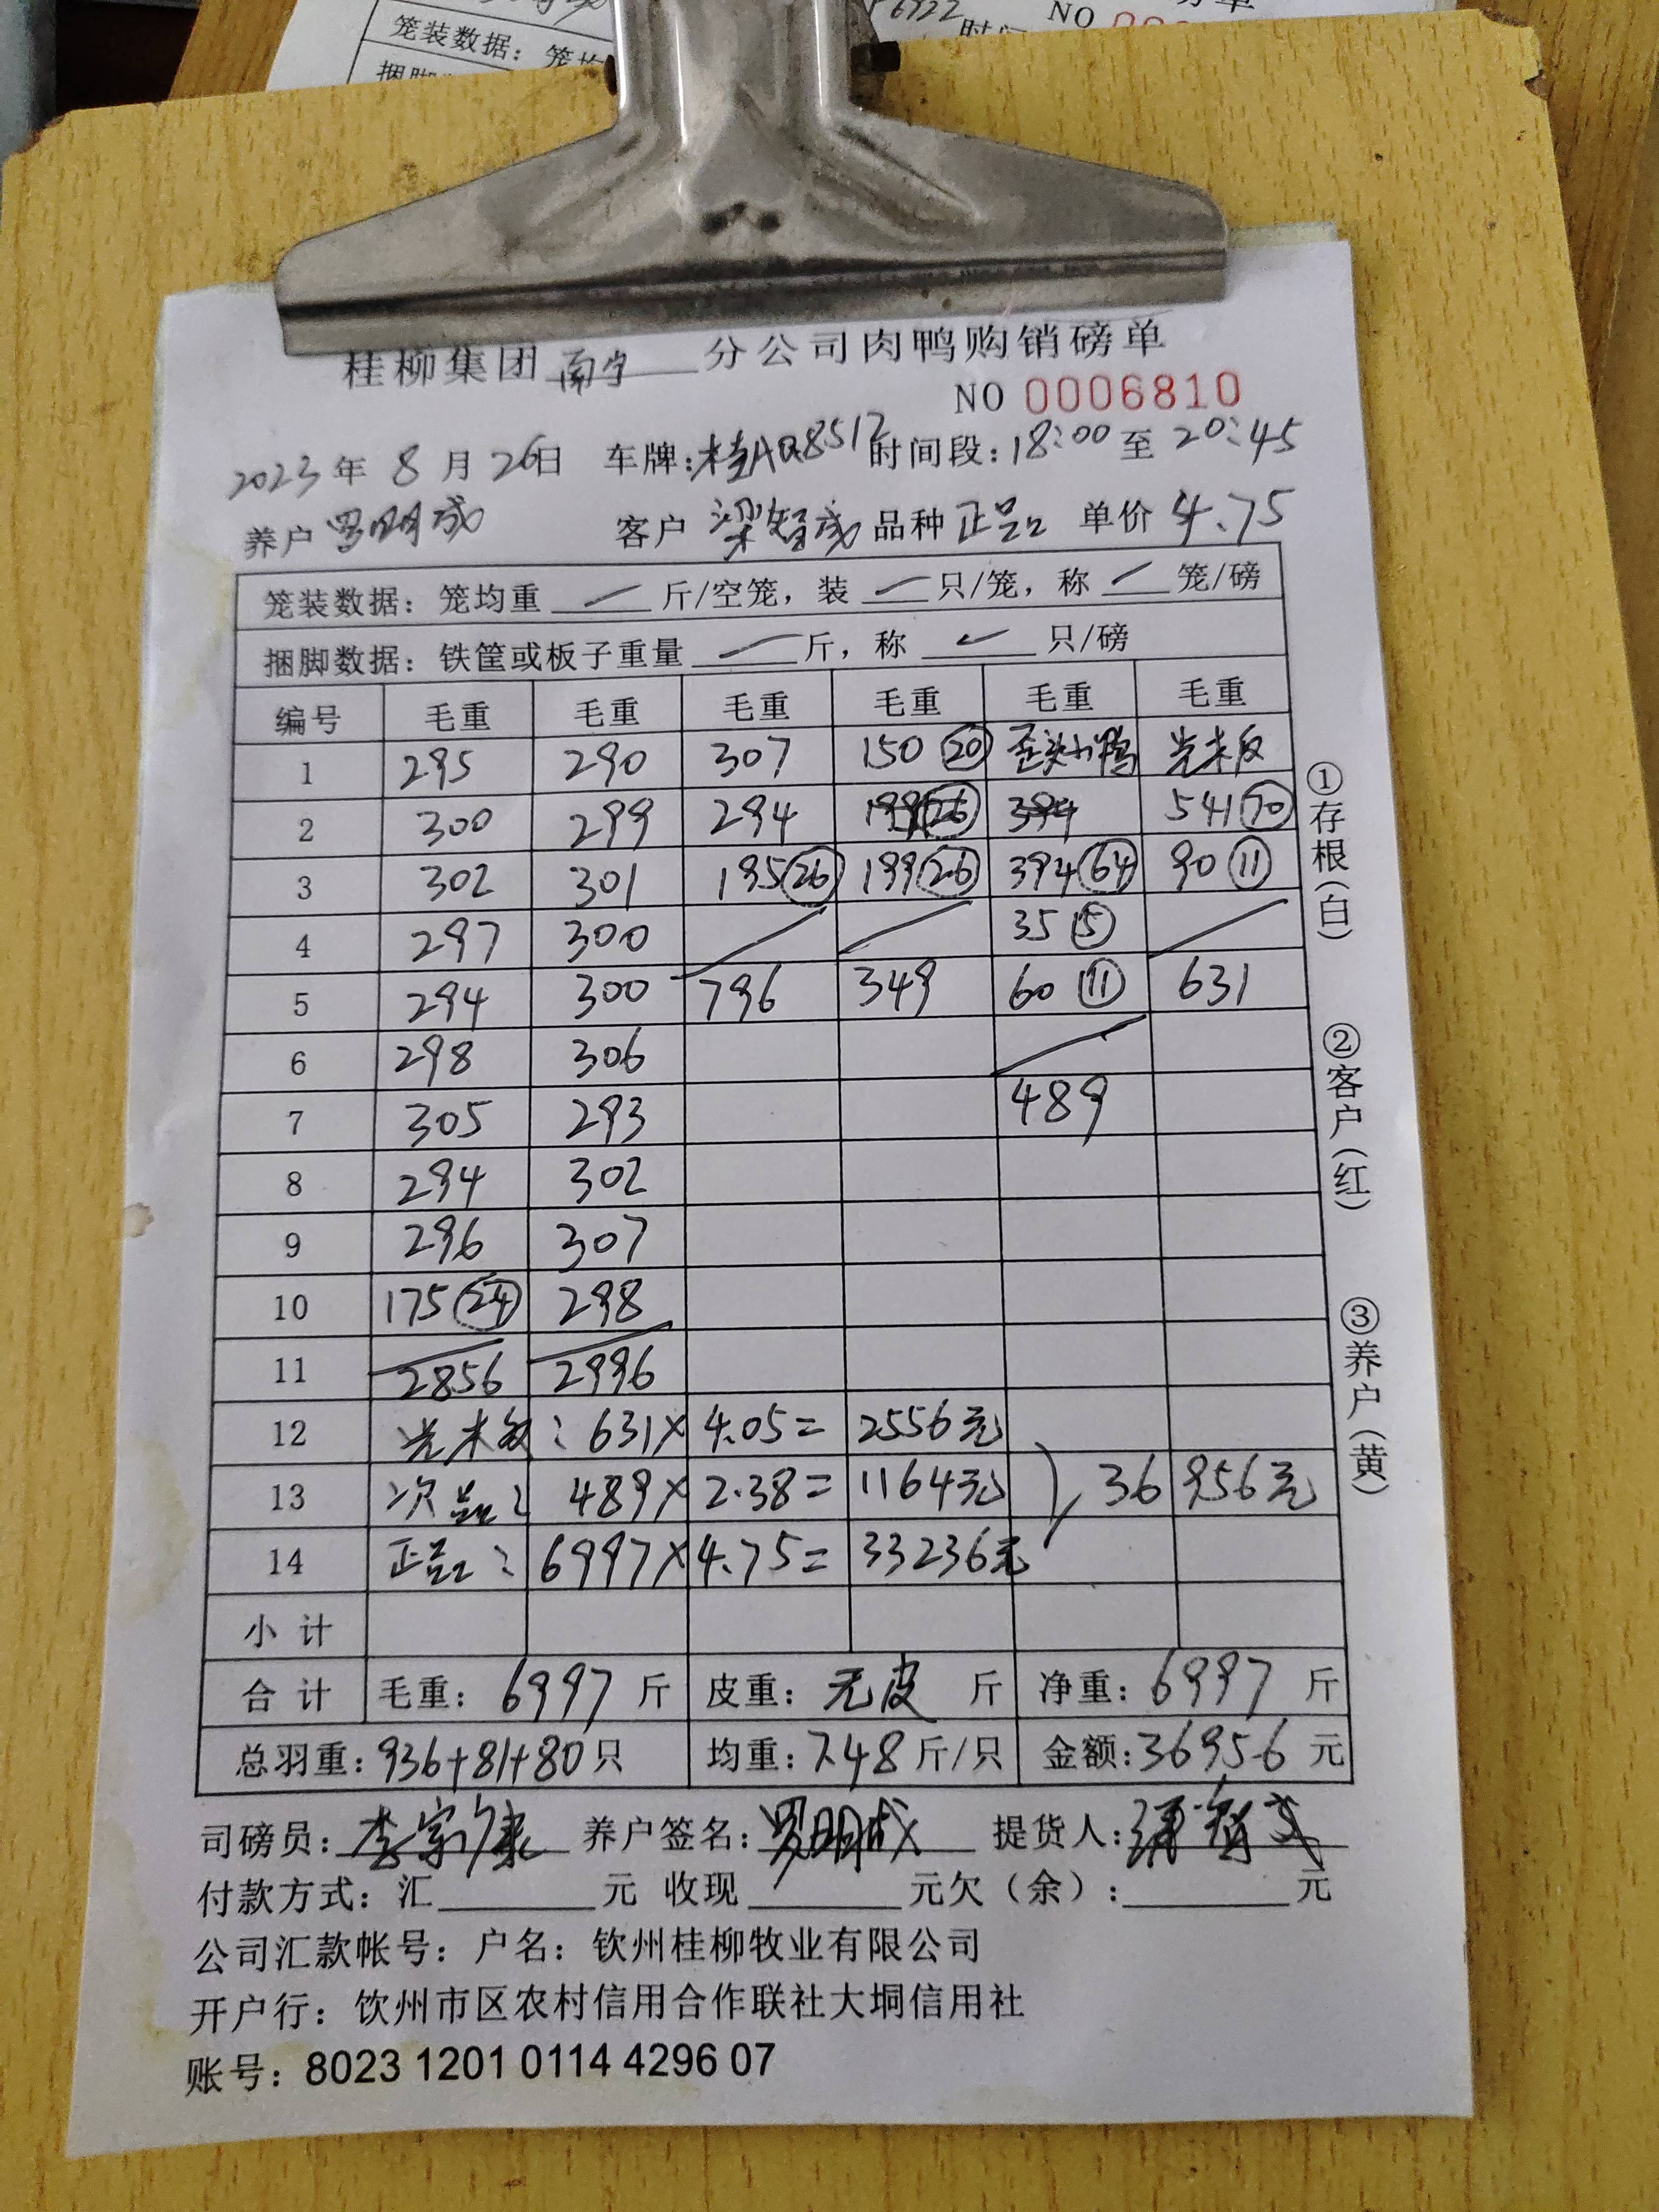 笼装数据：笼均
6922
NO
时间
桂柳集团 南宁 分公司肉鸭购销磅单
NO 0006810
2023年 8 月 26日 车牌:桂AQ8512 时间段:18:00 至 20:45
养户 罗明成 客户 梁智成 品种 正品 单价 4.75
笼装数据：笼均重 — 斤/空笼，装 — 只/笼，称 — 笼/磅
捆脚数据：铁筐或板子重量 — 斤，称 — 只/磅
编号 毛重 毛重 毛重 毛重 毛重 毛重
1 295 290 307 150 20 歪头小鸭 光未反
2 300 299 294 541 70
3 302 301 195 26 199 26 394 64 90 11
4 297 300 35 5
5 294 300 796 349 60 11 631
6 298 306
7 305 293 489
8 294 302
9 296 307
10 175 24 298
11 2856 2996
12 631×4.05= 2556元
13 次品: 489×2.38= 1164元 36956元
14 正品: 6997×4.75= 33236元
小 计
合 计 毛重： 6997 斤 皮重： 无皮 斤 净重： 6997 斤
总羽重：936+81+80只 均重：7.48斤/只 金额：36956 元
司磅员：李宗康 养户签名：罗明成 提货人：
付款方式：汇 元 收现 元欠（余）： 元
公司汇款帐号：户名：钦州桂柳牧业有限公司
开户行：钦州市区农村信用合作联社大垌信用社
账号：8023 1201 0114 4296 07
①存根(白)
②客户(红)
③养户(黄)